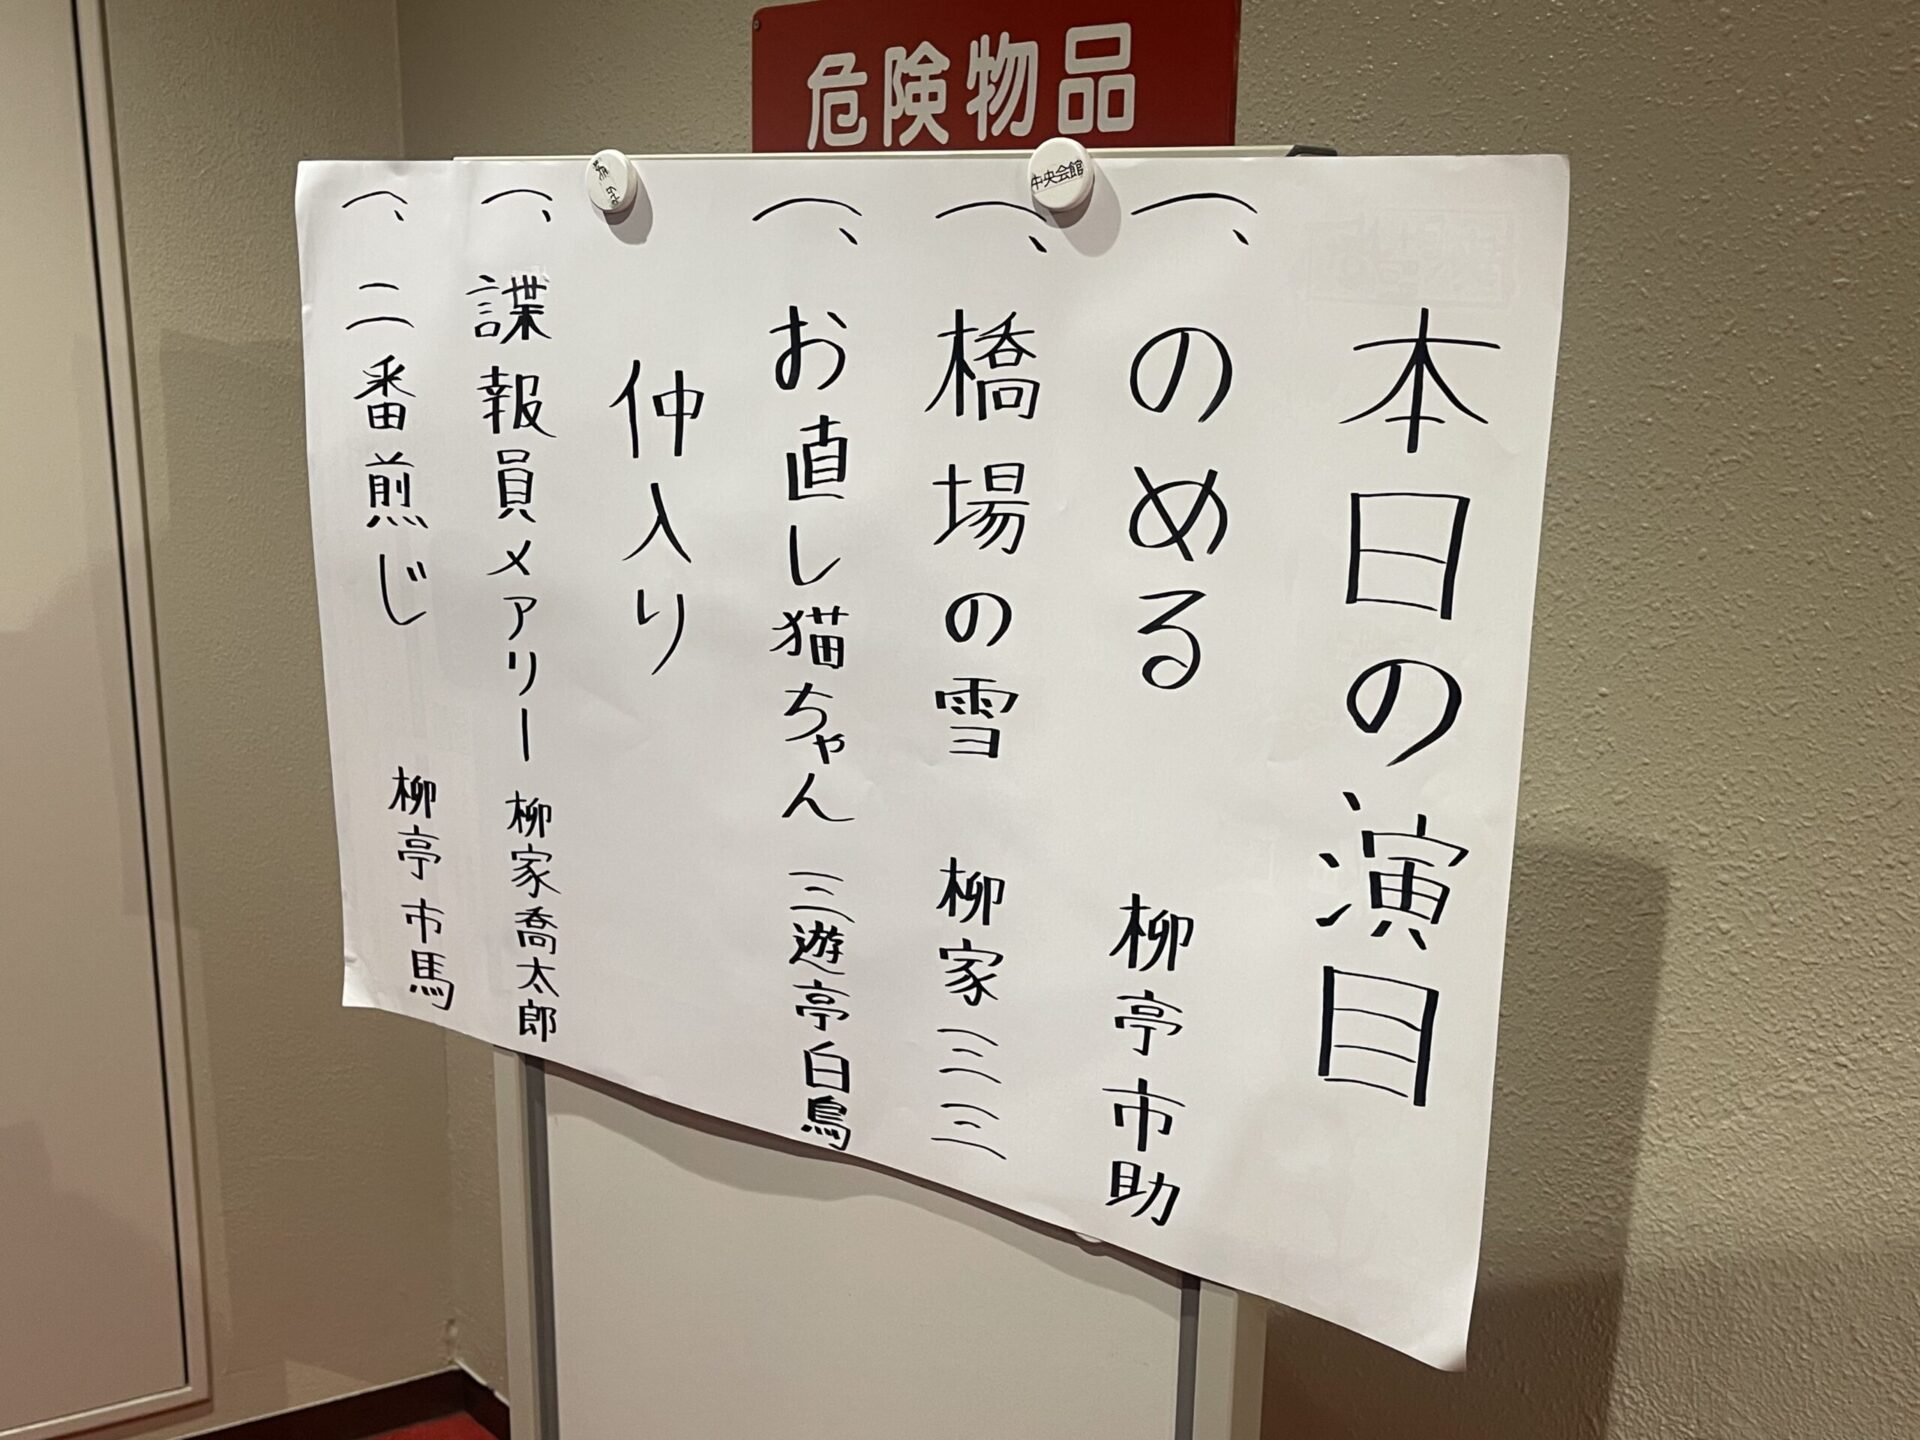 危険物品
中央会館
本日の演目
一、のめる 柳亭市助
一、橋場の雪 柳家三三
一、お直し猫ちゃん 三遊亭白鳥
仲入り
一、諜報員メアリー 柳家喬太郎
一、二番煎じ 柳亭市馬